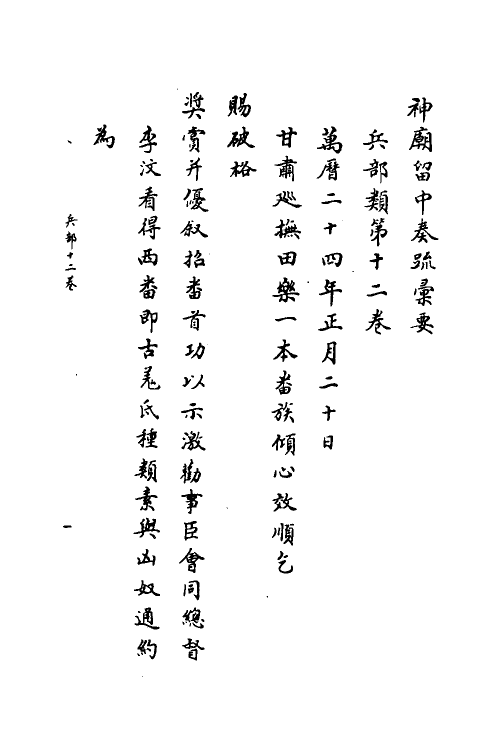 神廟留中奏疏彙要
兵部類第十二卷
萬曆二十四年正月二十日
甘肅廵撫田樂一本番族傾心效順乞
賜破格
奬賞并優叙招番首功以示激勸事臣會同總督
李汶看得西番即古羌氐種類素與凶奴通約
為
兵部十二卷
一